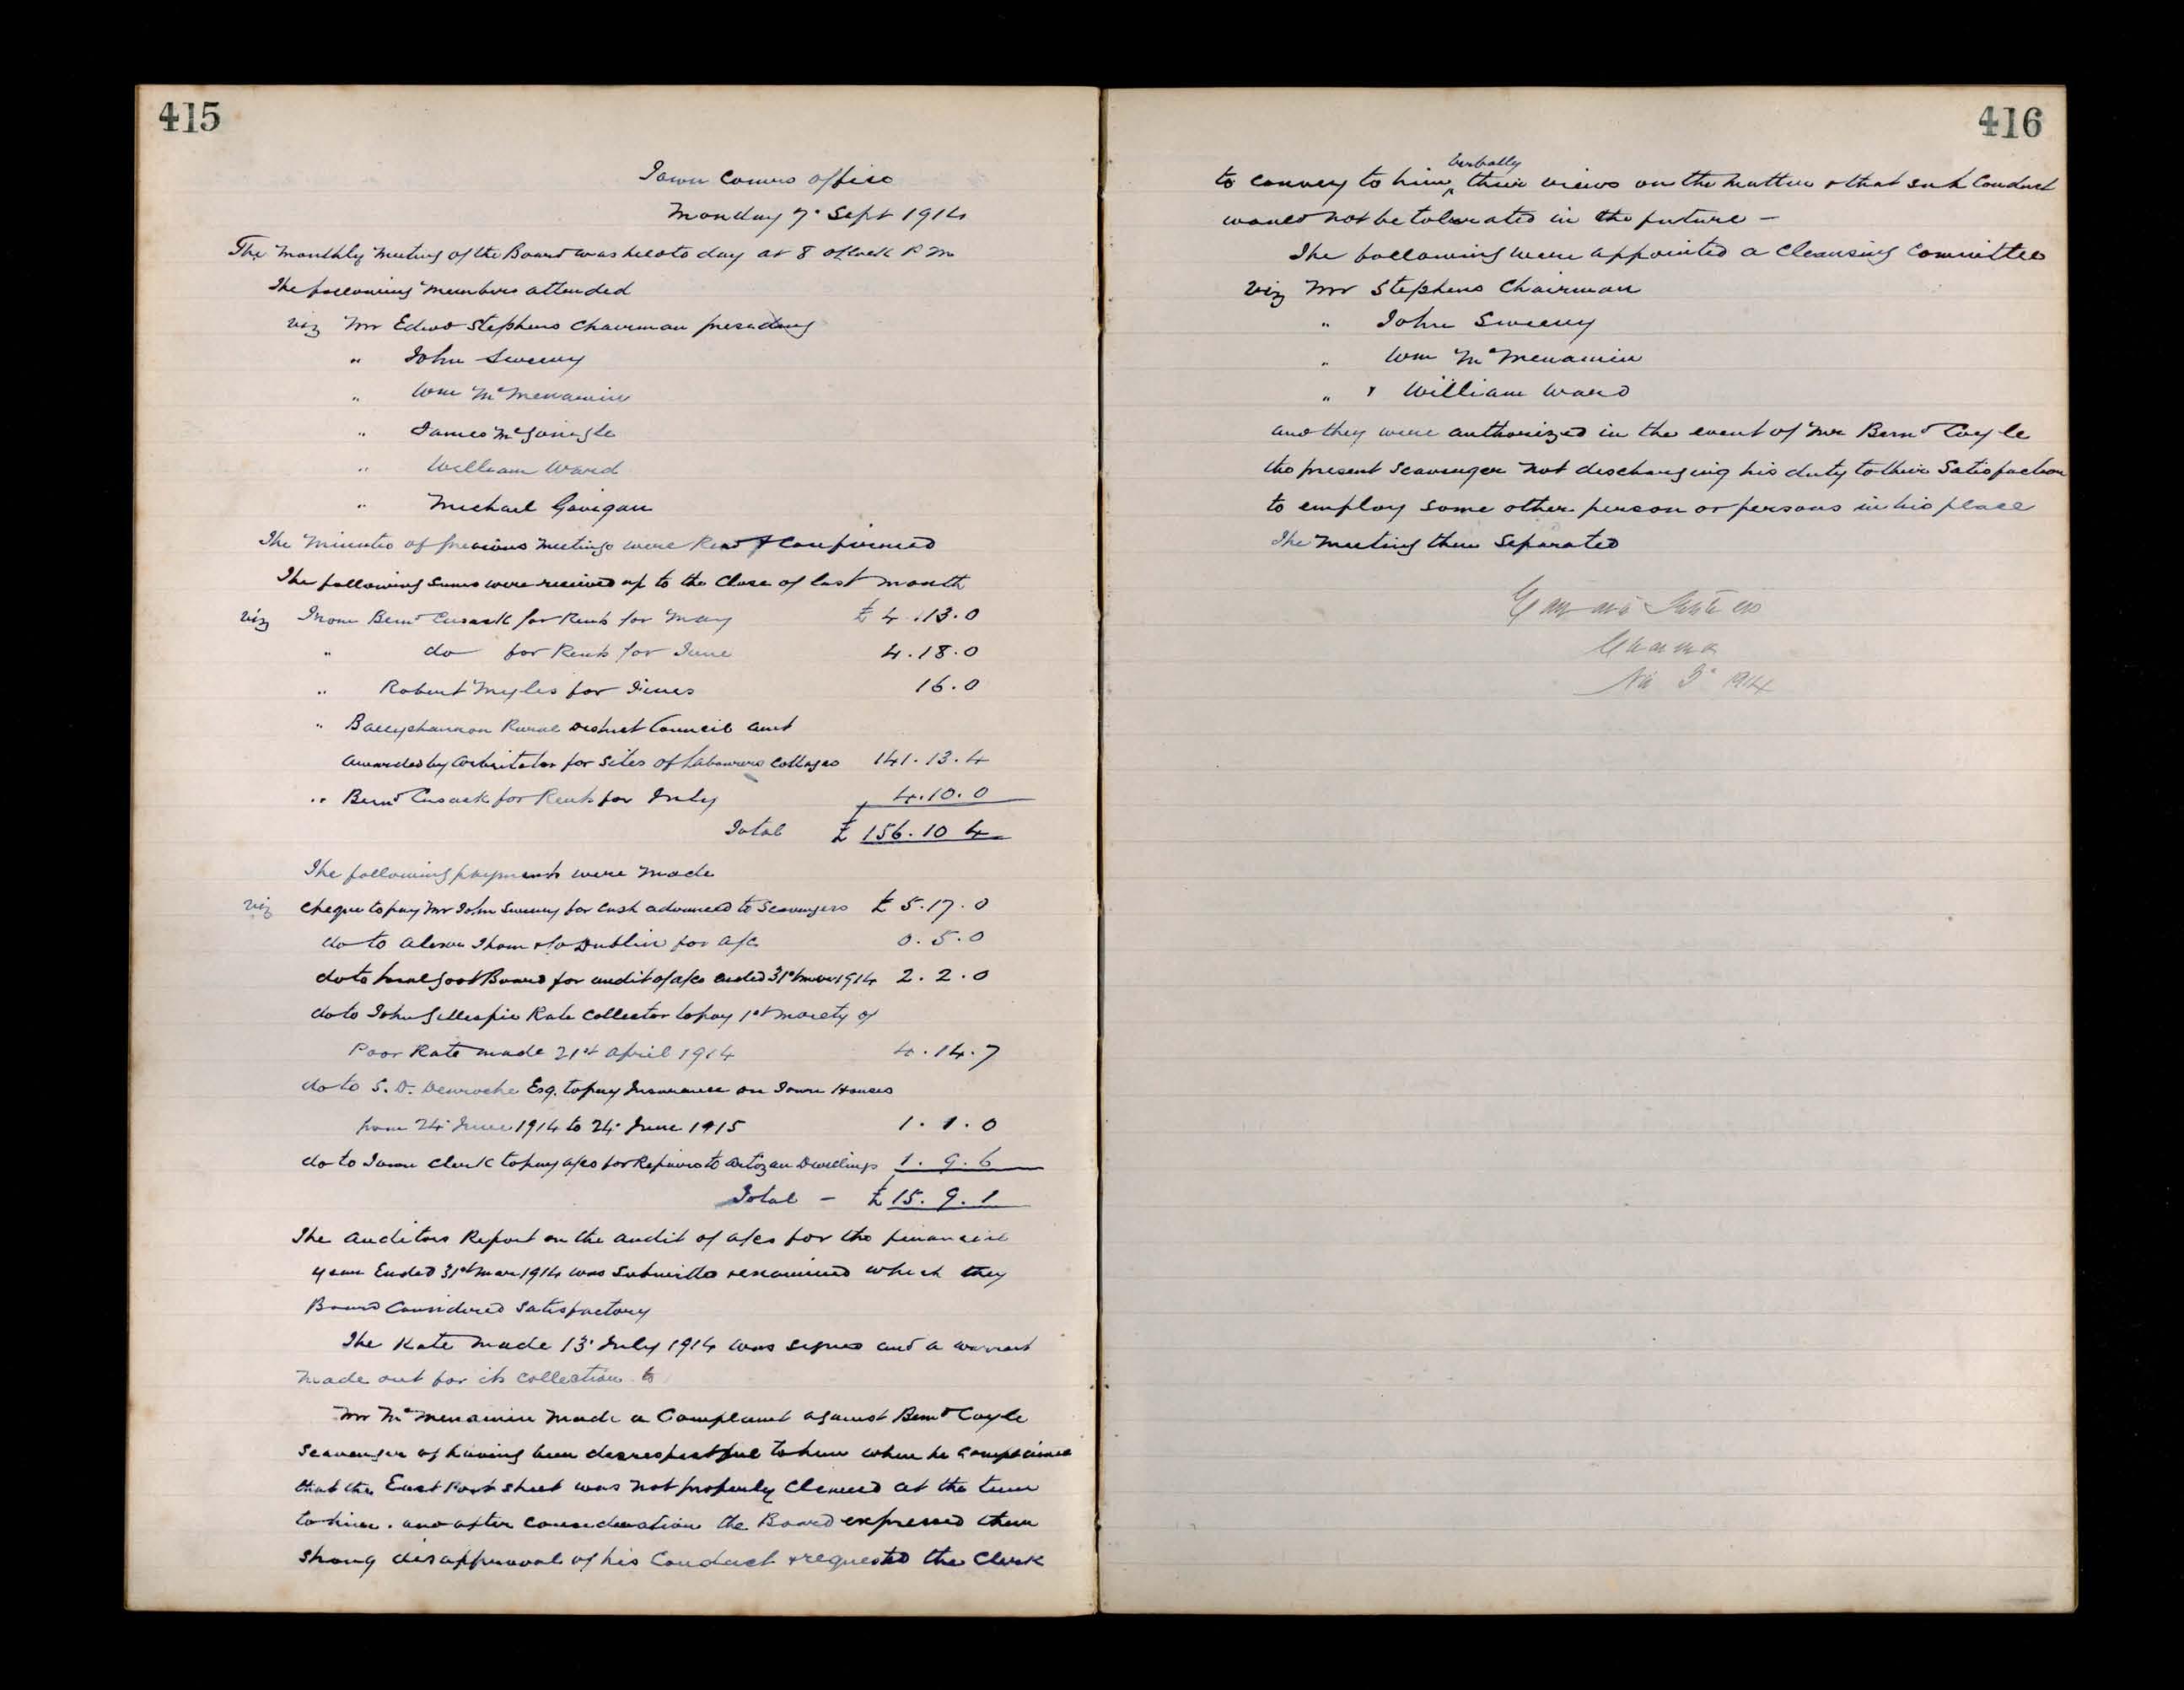 415
Town Comrs office
Monday 7. Sept 1914
The monthly meeting of the Board was held to day at 8 oclock P M
The following members attended
viz Mr Edwd Stephens Chairman presiding
" John Sweeny
" Wm McMenamin
" James McGonigle
" William Ward
" Michael Gavigan
The Minutes of previous meetings were Read & Confirmed
The following sums were received up to the Close of last month
viz From Bernd Cusack for Rents for May £ 4.13.0
" do for Rents for June 4.18.0
" Robert Myles for Fines 16.0
" Ballyshannon Rural District Council amt
awarded by Arbitrator for Sites of Labourers Cottages 141.13.4
" Bernd Cusack for Rents for July 4.10.0
Total £ 156.10 4
The following payments were made
viz Cheque to pay Mr John Sweeny for Cash advanced to Scavengers £ 5.17.0
do to Alexr Thom & Co Dublin for a/c 0.5.0
do to Local Govt Board for audit of a/cs ended 31st Mar 1914 2.2.0
do to John Gillespie Rate Collector to pay 1st moiety of
Poor Rate made 21st April 1914 4.14.7
do to S. D. Denroche Esq. to pay Insurance on Town Houses
from 24. June 1914 to 24. June 1915 1.1.0
do to Town Clerk to pay a/cs for Repairs to Artizan Dwellings 1.9.6
Total - £ 15.9.1
The Auditors Report on the audit of a/cs for the financial
year Ended 31st Mar 1914 was Submitted & examined which they
Board Considered Satisfactory
The Rate made 13. July 1914 was signed and a warrant
made out for its collection to
Mr McMenamin made a Complaint against Bernd Coyle
Scavenger of having been disrespectful to him when he Complained
that the East Port street was not properly Cleaned at the time
to him. and after Consideration the Board expressed their
strong disapproval of his Conduct & requested the Clerk
416
to convey to him verbally their views on the matter & that such Conduct
would not be tolerated in the future -
The following were appointed a Cleansing Committee
viz Mr Stephens Chairman
" John Sweeny
" Wm McMenamin
" & William Ward
and they were authorized in the event of Mr Bernd Coyle
the present Scavenger not discharging his duty to their Satisfaction
to employ some other person or persons in his place
The Meeting then Separated
1914